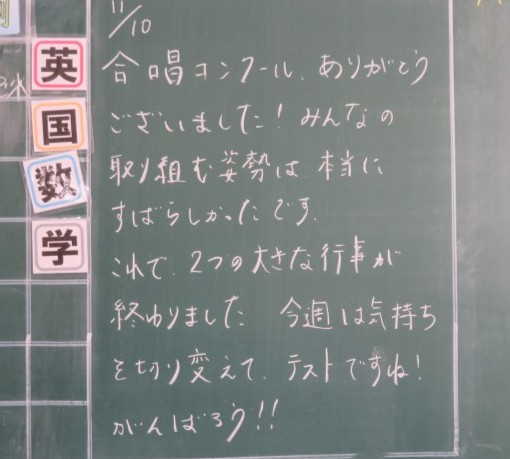 11/10
合唱コンクール、ありがとう
ございました！みんなの
取り組む姿勢は、本当に
すばらしかったです。
これで、2つの大きな行事が
終わりました 今週は気持ち
を切り変えて、テストですね！
がんばろう!!
英
国
数
学